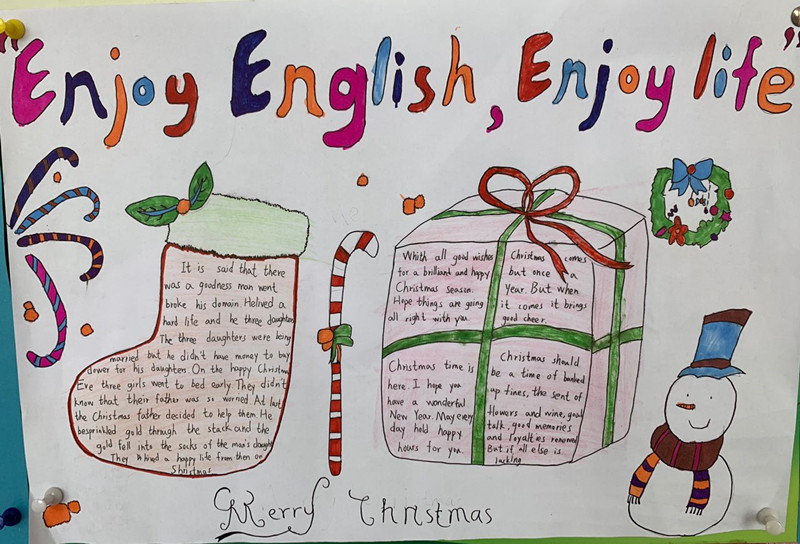 "Enjoy English, Enjoy life"
It is said that there
was a goodness man went
broke his domain. Helived a
hard life and he three daughters
The three daughters were being
married but he didn't have money to buy
dower for his daughters. On the happy Christm
Eve three girls went to bed early. They didn't
know that their father was so worried. At last
the Christmas father decided to help them. He
besprinkled gold through the stack and the
gold fell into the socks of the man's daught
They lived a happy life from then on
Shristmas
Whith all good wishes
for a brilliant and happy
Christmas season.
Hope things are going
all right with you.
Christmas comes
but once a
year. But when
it comes it brings
good cheer.
Christmas time is
here. I hope you
have a wonderful
New Year. May every
day hold happy
hours for you.
Christmas should
be a time of banked
up fines, the sent of
flowers and wine, good
talk, good memories
and loyalties renewed
But if all else is
lacking
Merry Christmas